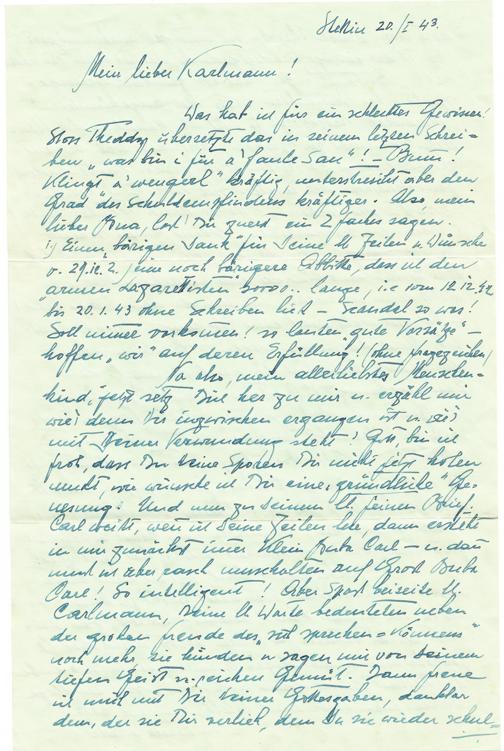 Stettin 20./I 43.
Mein lieber Karlmann!
Was hat ich für ein schlechtes Gewissen!
Stoss Theddy übersetzte das in seinem letzten Schrei-
ben "was bin i für a' faule Sau"! - Bumm!
Klingt "a' wengerl" kräftig, unterstreicht aber den
Grad des Schuldempfindens kräftiger. Also, mein
lieber, lass Dir zuerst ein 2faches sagen.
1) Einen "börigen Dank" für Deine lb. Zeilen u. Wünsche
v. 29.12. 2.) eine noch börigere Abbitte, dass ich den
"armen Lazarettischen soooo.. lange, i.e. vom 12.12.42
bis 20.1.43 ohne Schreiben liess - Skandal so was!
Soll nimmer vorkommen! so lauten "gute Vorsätze" -
hoffen "wir" auf deren Erfüllung! (ohne Fragezeichen)
So also, mein allerliebstes Menschen-
kind, jetzt setz Dich her zu mir u. erzähl mir
wie's denn Dir inzwischen ergangen ist u. wie's
mit Deiner Verwundung steht! Gott, bin ich
froh, dass Du Deine Sporen Dir nicht jetzt holen
musst, wie wünsche ich Dir eine "gründliche" Ge-
nesung! Und nun zu Deinem lb. feinen Brief.
Carl weisst, wenn ich Deine Zeilen lese, dann ersteht
in mir zunächst immer Klein Buba Carl - u. dann
muss ich eher rasch umschalten auf Gross Buba
Carl! So intelligent! Aber Spass beiseite lb.
Carlmann, Deine lb Worte bedeuteten neben
der grossen Freude des "sich sprechen = Könnens"
noch mehr, sie künden u. sagen mir von Deinem
tiefen Geist u. reichen Gemüt. Dann freue
ich mich mit Dir Deiner Gottesgaben, dankbar
dem, der sie Dir verlieh, dem Du sie wieder schul-